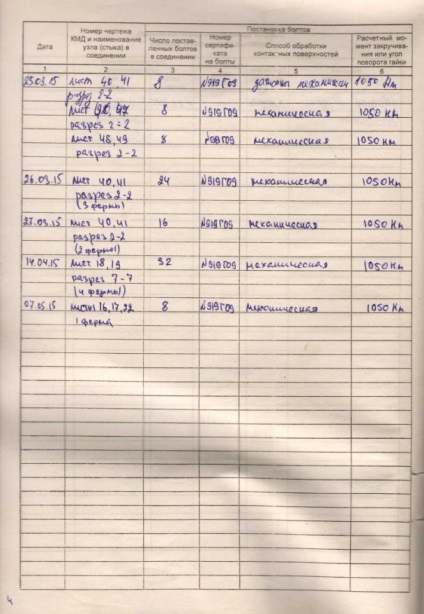 Постановка болтов
Дата
Номер чертежа КМД и наименование узла (стыка) в соединении
Число поставленных болтов в соединении
Номер сертификата на болты
Способ обработки контактных поверхностей
Расчетный момент закручивания или угол поворота гайки
1 2 3 4 5 6
23.03.15 лист 40, 41 8 №919Г09 механическая 1050 Нм
разрез 2-2
лист 8 №919Г09 механическая 1050 Кн
разрез 2-2
лист 48, 49 8 механическая 1050 Кн
разрез 2-2
26.03.15 лист 40, 41 24 №919Г09 механическая 1050 Кн
разрез 2-2
(3 фермы)
27.03.15 лист 40, 41 16 №919Г09 механическая 1050 Кн
разрез 2-2
(2 фермы)
14.04.15 лист 18, 19 32 №919Г09 механическая 1050 Кн
разрез 7-7
(4 фермы)
07.05.15 листы 16, 17, 22 8 №919Г09 механическая 1050 Кн
1 ферма
4